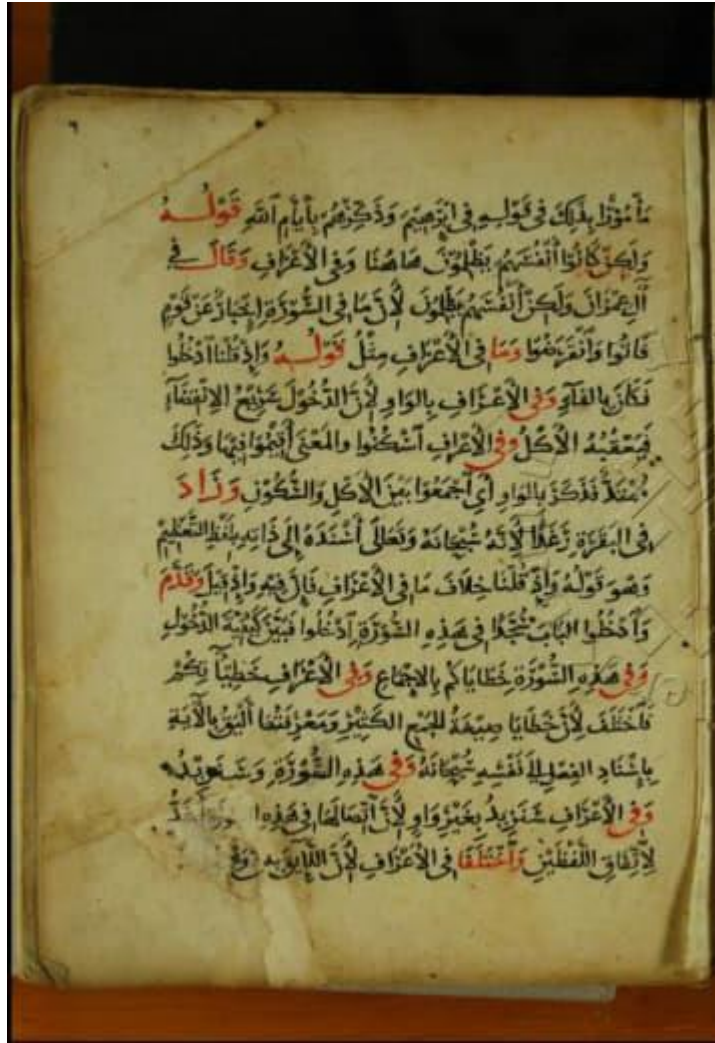 مَأْمُورًا بِذَلِكَ فِي قَوْلِهِ فِي إِبْرَهِيمَ وَذَكِّرْهُمْ بِأَيَّامِ اللَّهِ قَوْلُهُ
وَلَكِنْ كَانُوا أَنْفُسَهُمْ يَظْلِمُونَ هَاهُنَا وَفِي الْأَعْرَافِ وَقَالَ فِي
آلِ عِمْرَانَ وَلَكِنْ أَنْفُسَهُمْ يَظْلِمُونَ لِأَنَّ مَا فِي السُّورَةِ إِخْبَارٌ عَنْ قَوْمٍ
فَاتُوا وَانْقَرَضُوا وَمَا فِي الْأَعْرَافِ مِثْلُ قَوْلُهُ وَإِذْ قُلْنَا ادْخُلُوا
فَكَانَ بِالْفَاءِ وَفِي الْأَعْرَافِ بِالْوَاوِ لِأَنَّ الدُّخُولَ سَرِيعُ الِانْقِضَاءِ
فَيَعْقُبُهُ الْأَكْلُ وَفِي الْأَعْرَافِ اسْكُنُوا وَالْمَعْنَى أَقِيمُوا فِيهَا وَذَلِكَ
مُمْتَدٌّ فَذَكَرَ بِالْوَاوِ أَيِ اجْمَعُوا بَيْنَ الْأَكْلِ وَالسُّكُونِ وَزَادَ
فِي الْبَقَرَةِ رَغَدًا لِأَنَّهُ سُبْحَانَهُ وَتَعَالَى أَسْنَدَهُ إِلَى ذَاتِهِ بِلَفْظِ التَّعْظِيمِ
وَهُوَ قَوْلُهُ وَإِذْ قُلْنَا خِلَافَ مَا فِي الْأَعْرَافِ فَإِنَّ فِيهِ وَإِذْ قِيلَ وَقَدَّمَ
وَادْخُلُوا الْبَابَ سُجَّدًا فِي هَذِهِ السُّورَةِ ادْخُلُوا فَبَيَّنَ كَيْفِيَّةَ الدُّخُولِ
وَفِي هَذِهِ السُّورَةِ خَطَايَاكُمْ بِالْإِجْمَاعِ وَفِي الْأَعْرَافِ خَطِيئَاتِكُمْ
فَاخْتَلَفَ لِأَنَّ خَطَايَا صِيغَةُ الْجَمْعِ الْكَثِيرِ وَمَغْفِرَتُهَا أَلْيَقُ بِالْآيَةِ
بِإِسْنَادِ الْفِعْلِ إِلَى نَفْسِهِ سُبْحَانَهُ وَفِي هَذِهِ السُّورَةِ وَسَنَزِيدُ
وَفِي الْأَعْرَافِ سَنَزِيدُ بِغَيْرِ وَاوٍ لِأَنَّ اتِّصَالَهَا فِي هَذِهِ السُّورَةِ أَشَدُّ
لِاتِّفَاقِ اللَّفْظَيْنِ وَاخْتَلَفَا فِي الْأَعْرَافِ لِأَنَّ اللَّائِقَ بِهِ